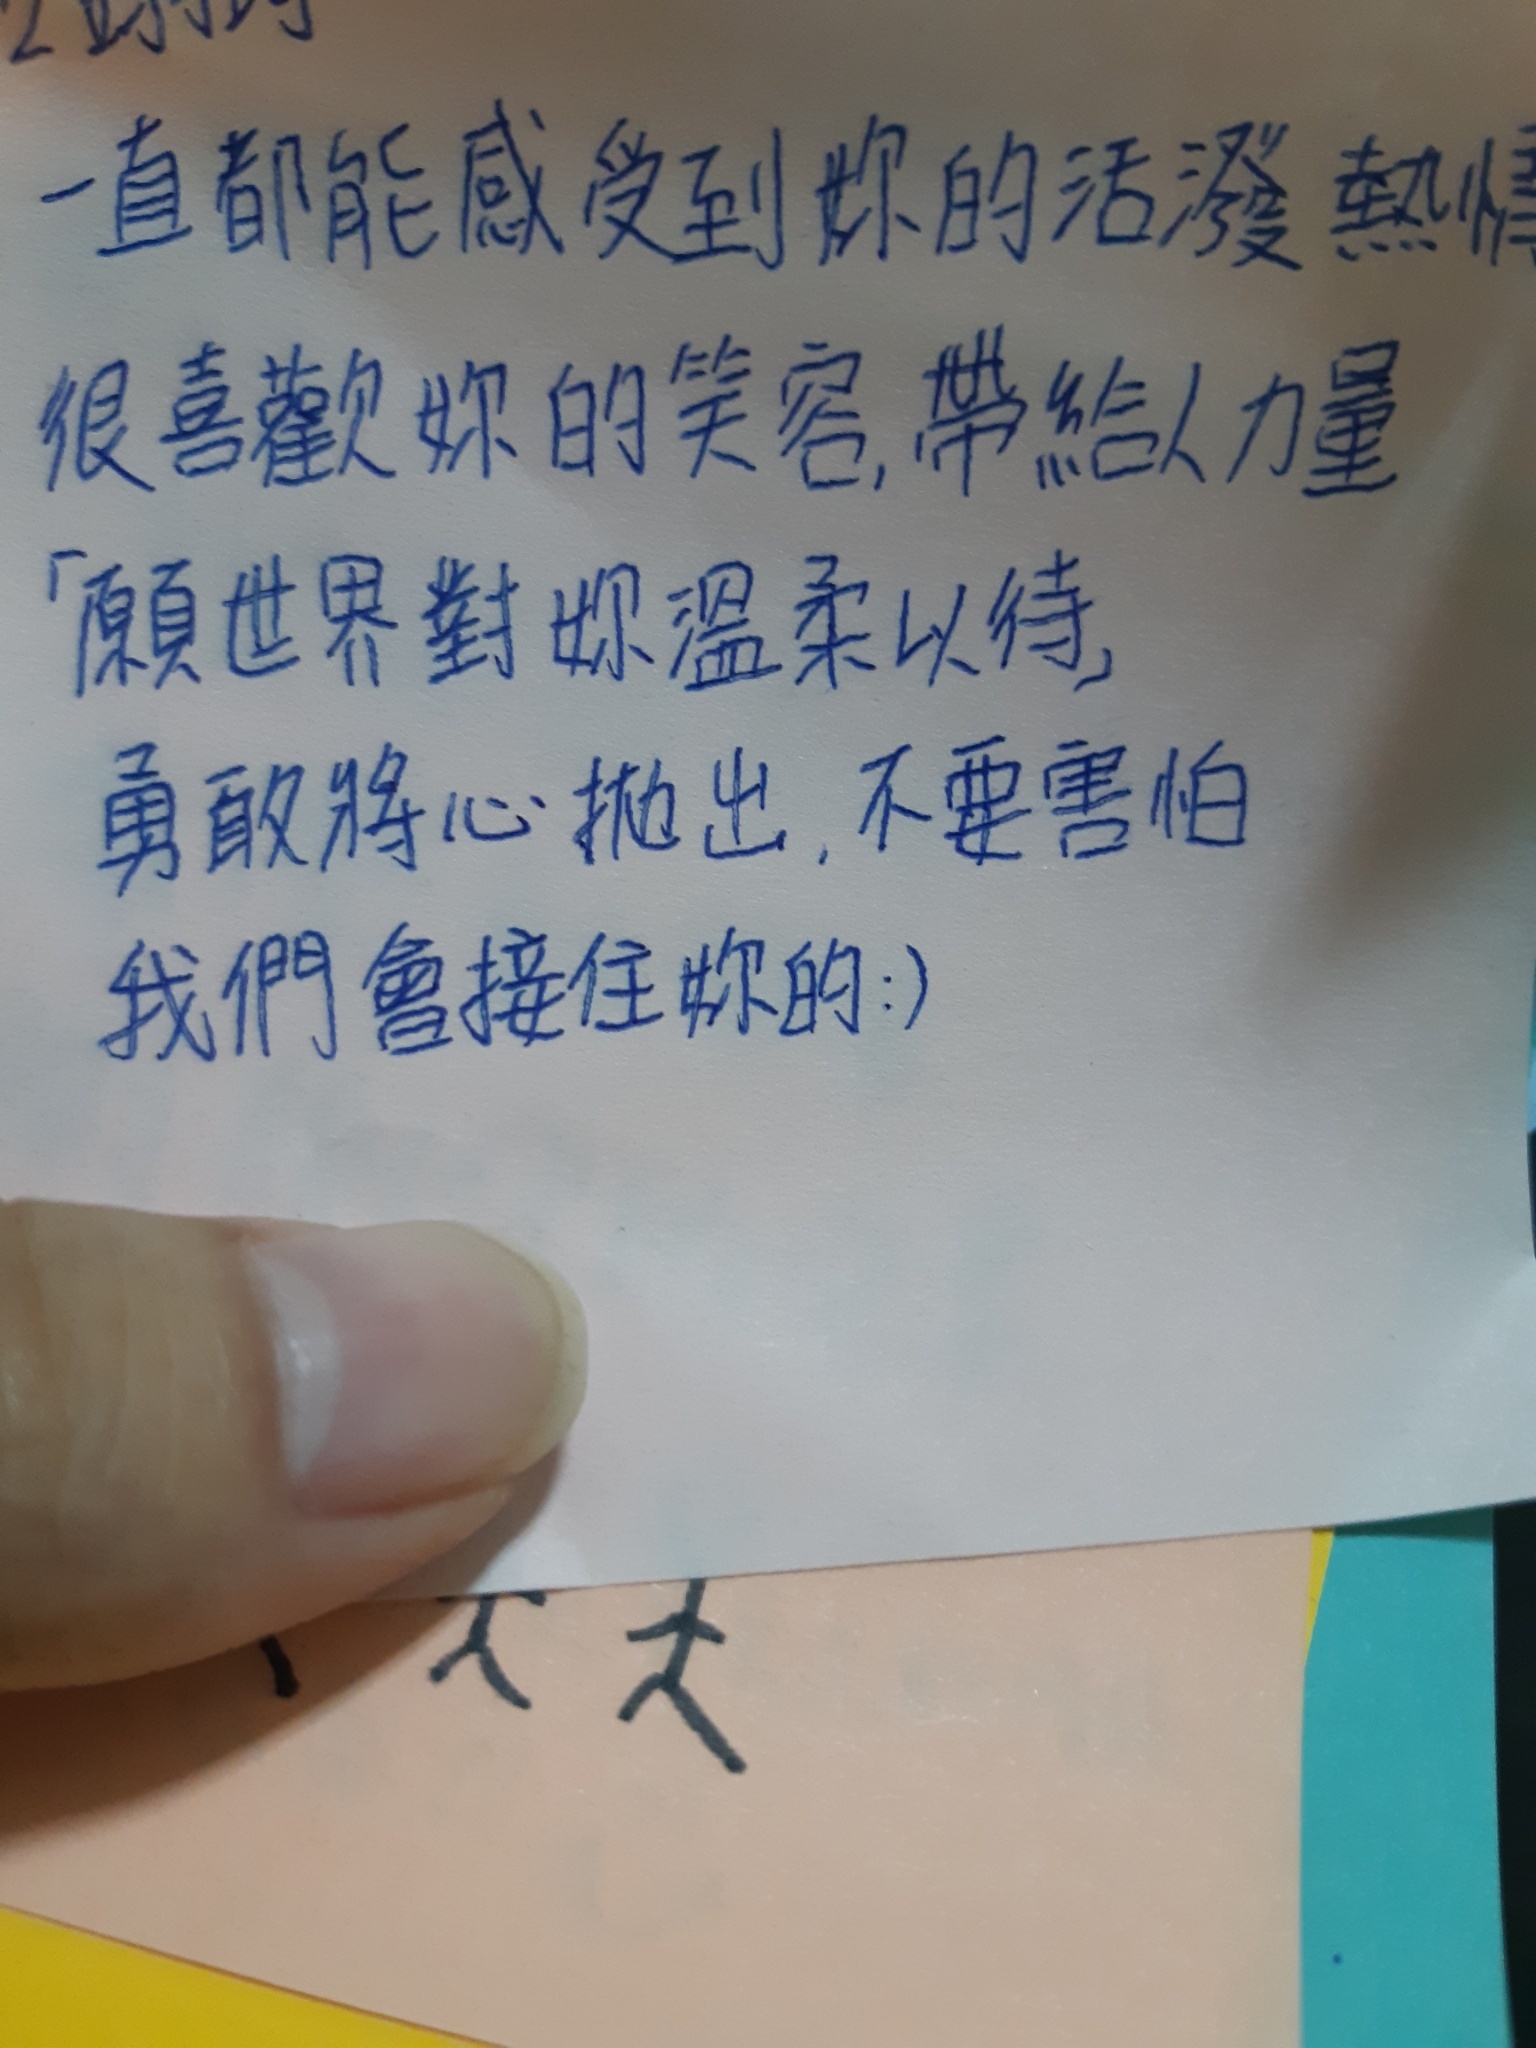 一直都能感受到妳的活潑熱情
很喜歡妳的笑容,帶給人力量
「願世界對妳溫柔以待」
勇敢將心拋出,不要害怕
我們會接住妳的:)